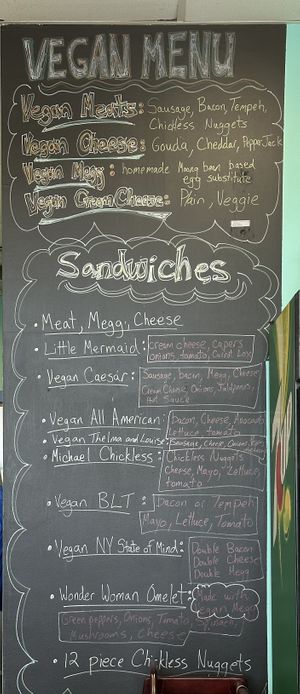 VEGAN MENU
Vegan Meats: Sausage, Bacon, Tempeh,
Chickless Nuggets
Vegan Cheese: Gouda, Cheddar, Pepper Jack
Vegan Megg: homemade Moong bean based
egg substitute
Vegan Cream Cheese: Plain, Veggie
Sandwiches
• Meat, Megg, Cheese
• Little Mermaid: Cream cheese, capers
onions, tomato, Carrot Lox
• Vegan Caesar: Sausage, bacon, Megg, Cheese
Cream Cheese, Onions, Jalapenos,
Hot Sauce
• Vegan All American: Bacon, Cheese, Avocado
Lettuce Tomato
• Vegan Thelma and Louise: Sausage, Cheese, Onions,
• Michael Chickless: Chickless Nuggets
Cheese, Mayo, Lettuce,
tomato
• Vegan BLT: Bacon or Tempeh
Mayo, Lettuce, Tomato
• Vegan NY State of Mind: Double Bacon
Double Cheese
Double Megg
• Wonder Woman Omelet: Made with
Vegan Megg
Green peppers, Onions, Tomato, Spinach,
Mushrooms, Cheese
• 12 piece Chickless Nuggets